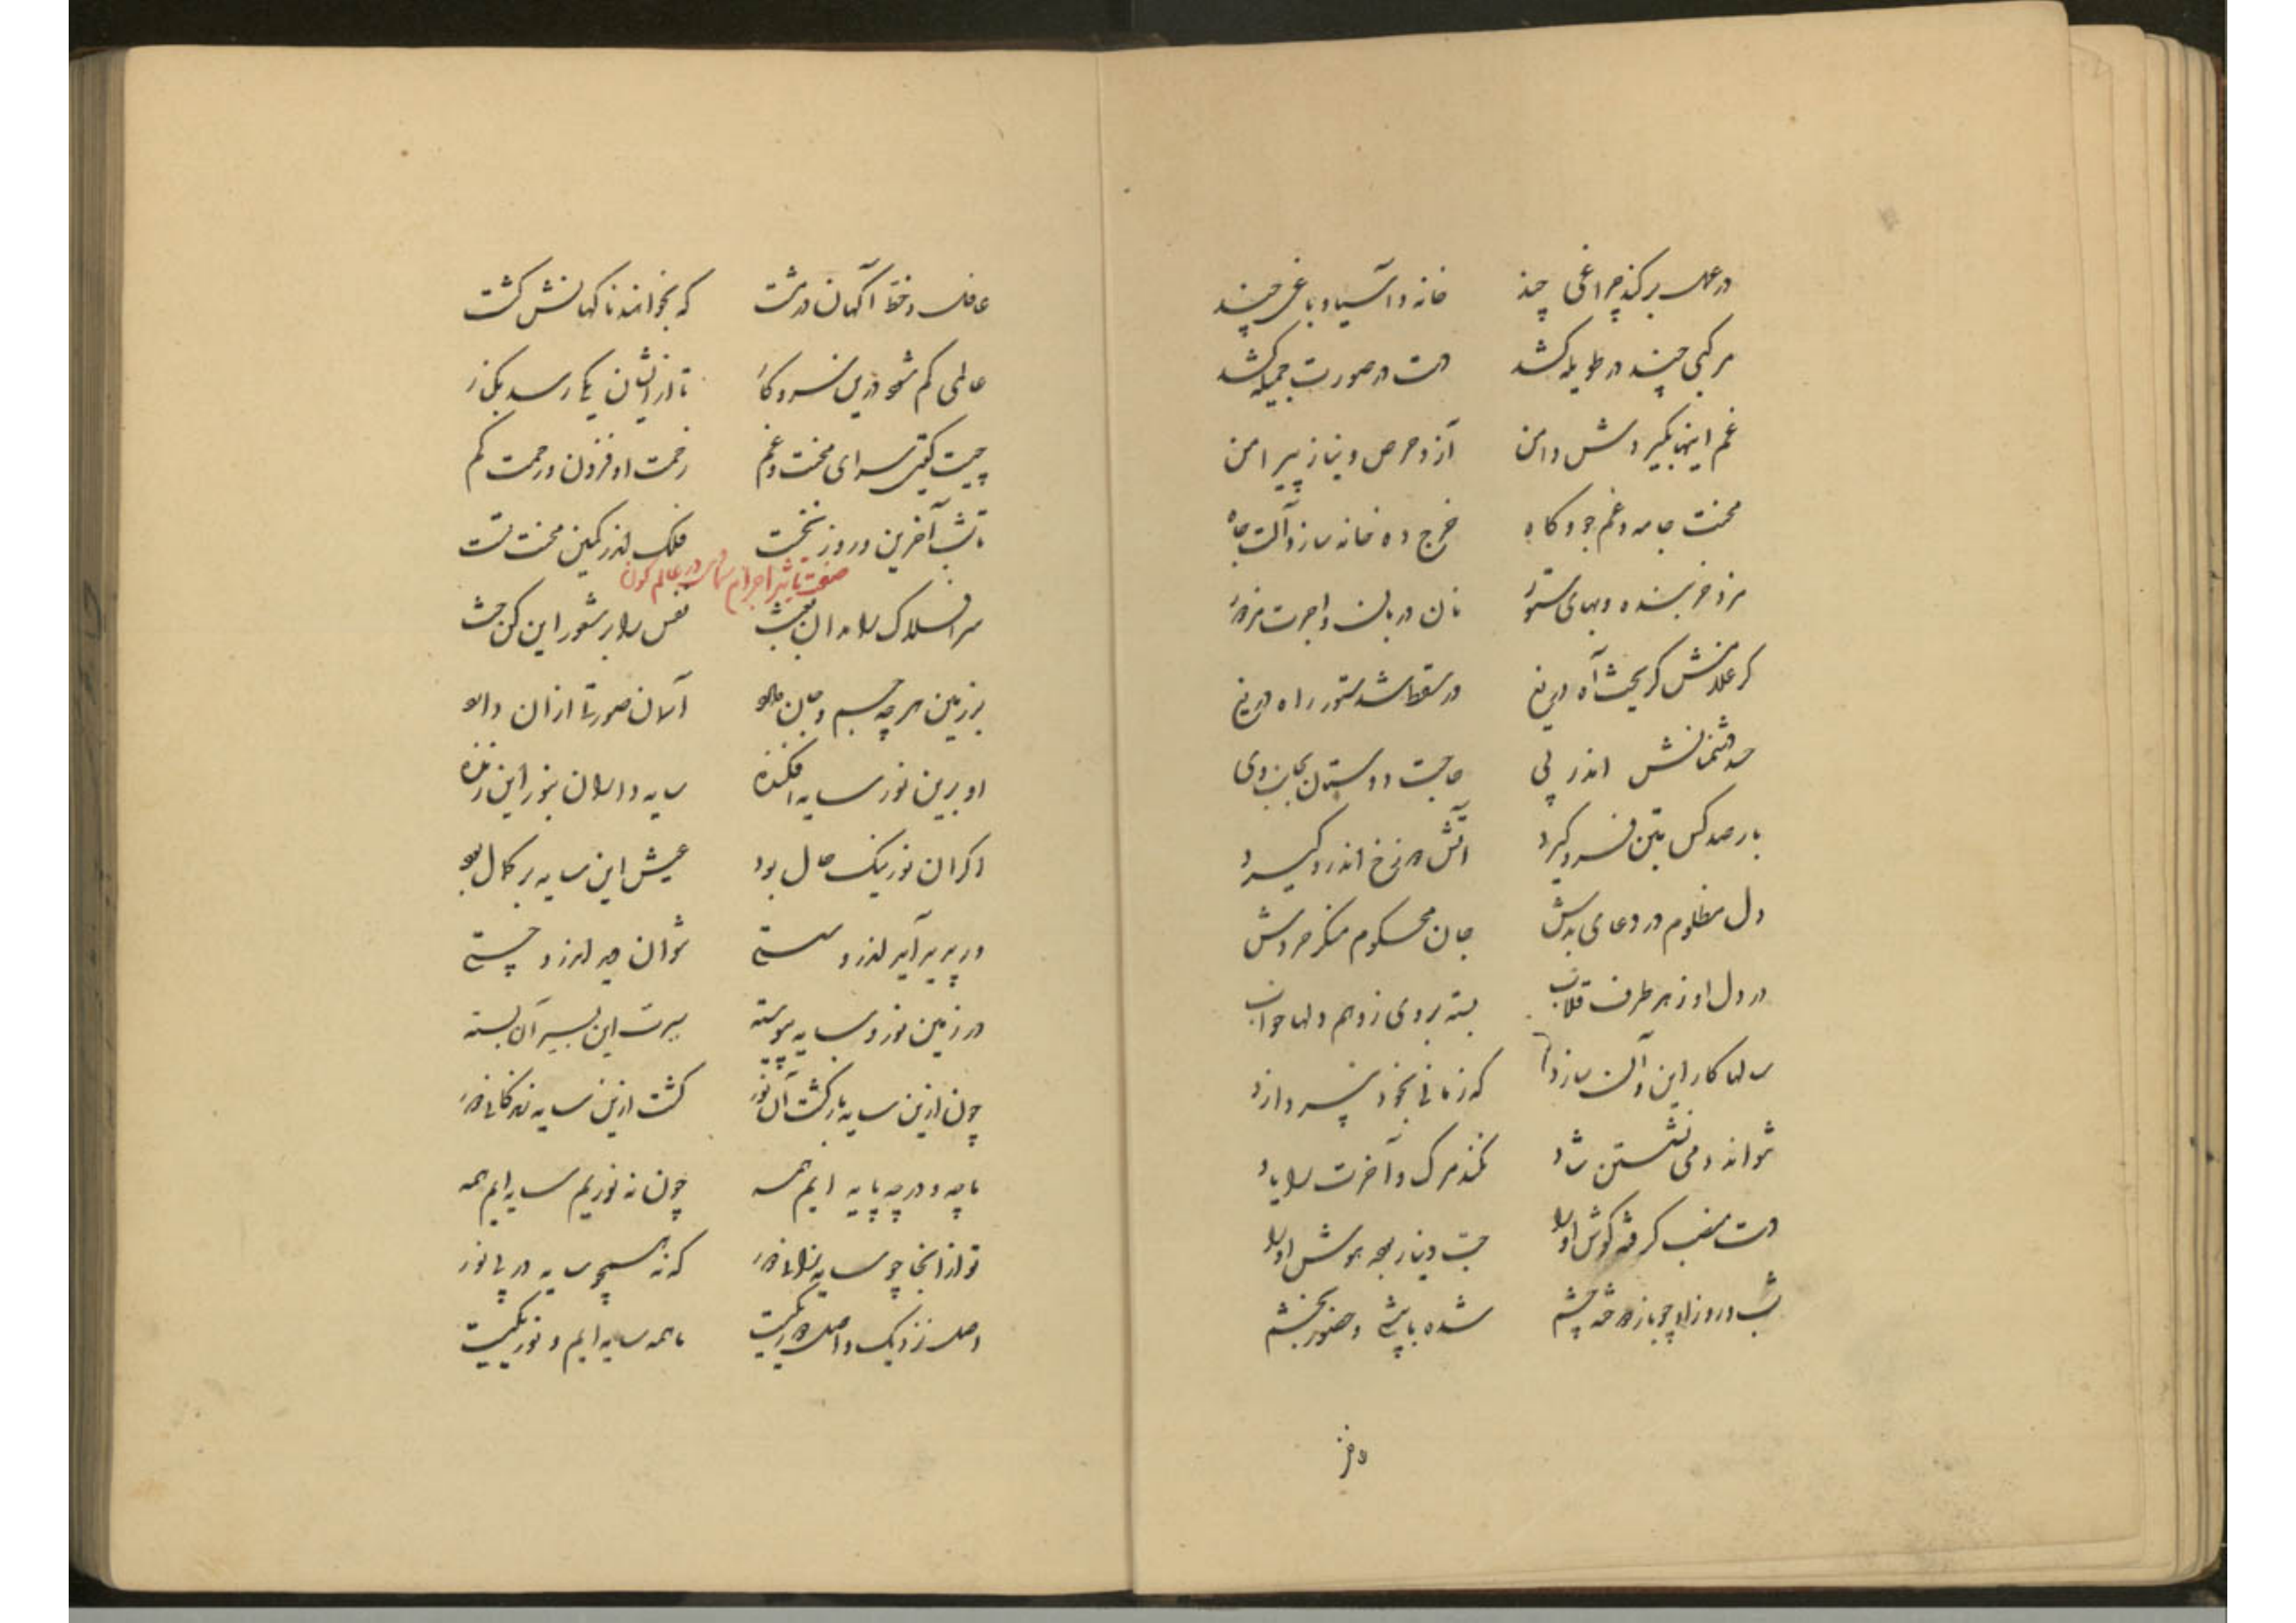 در عمل برکند چراغی چند خانه و آسیا و باغی چند
مرکبی چند در طویله کشد دست در صورت جمیله کشد
غم اینها بگیردش دامن آز و حرص و نیاز پیرامن
محنت جامه و غم جو و کاه خرج ده خانه ساز و آلت جاه
مزد خربنده و بهای ستور نان دربان و اجرت مزدور
گر غلامش گریخت آه دریغ در سقط شد ستور راه دریغ
صد دشمنانش اندر پی حاجت دوستان بجانب وی
بار صد کس بتن فرو گیرد آتش دوزخ اندرو گیرد
دل مظلوم در دعای بدش جان محکوم منکر خردش
در دل او ز هر طرف قلاب بسته بر وی ز وهم دلها خواب
سالها کار این و آن سازد که زمانی بخود نپردازد
نتواند دمی نشستن شاد نکند مرگ و آخرت را یاد
دست منصب گرفته گوش او را حب دنیا ربوده هوش او را
شب و روز او چو باز دوخته چشم شده با پشه در حضور بخشم
دفتر
عاقل و خط آگهان درشت که بخوانند ناگهانش کشت
عالمی گم شود درین سر و کار تا ازیشان یکی رسد بکنار
چیست گیتی سرای محنت و غم زحمت او فزون و رحمت کم
تا شب آخرین و روز نخست فلک اندر کمین محنت تست
صفت تأثیر اجرام سماوی در عالم کون
سر افلاک را بدان بعث نفس را بر شعور این کن حث
بر زمین هرچه جسم و جان دارد آسمان صورتی از آن دارد
او برین نور سایه افکنده سایه داران بنور این زنده
اگر آن نور نیک حال بود عیش این سایه بر کمال بود
ور پدید آید اندرو سستی نتوان دید ازو چستی
در زمین نور و سایه پیوسته سیرت این بسیر آن بسته
چون ازین سایه بازگشت آن نور گشت ازین سایه زندگانی دور
ما چه و در چه پایه ایم همه چون نه نوریم سایه ایم همه
تو از آنجا چو سایه‌ای دور که نه همچو سایه در پی نور
اصل نزدیک و اصل دور یکیست ما همه سایه ایم و نور یکیست